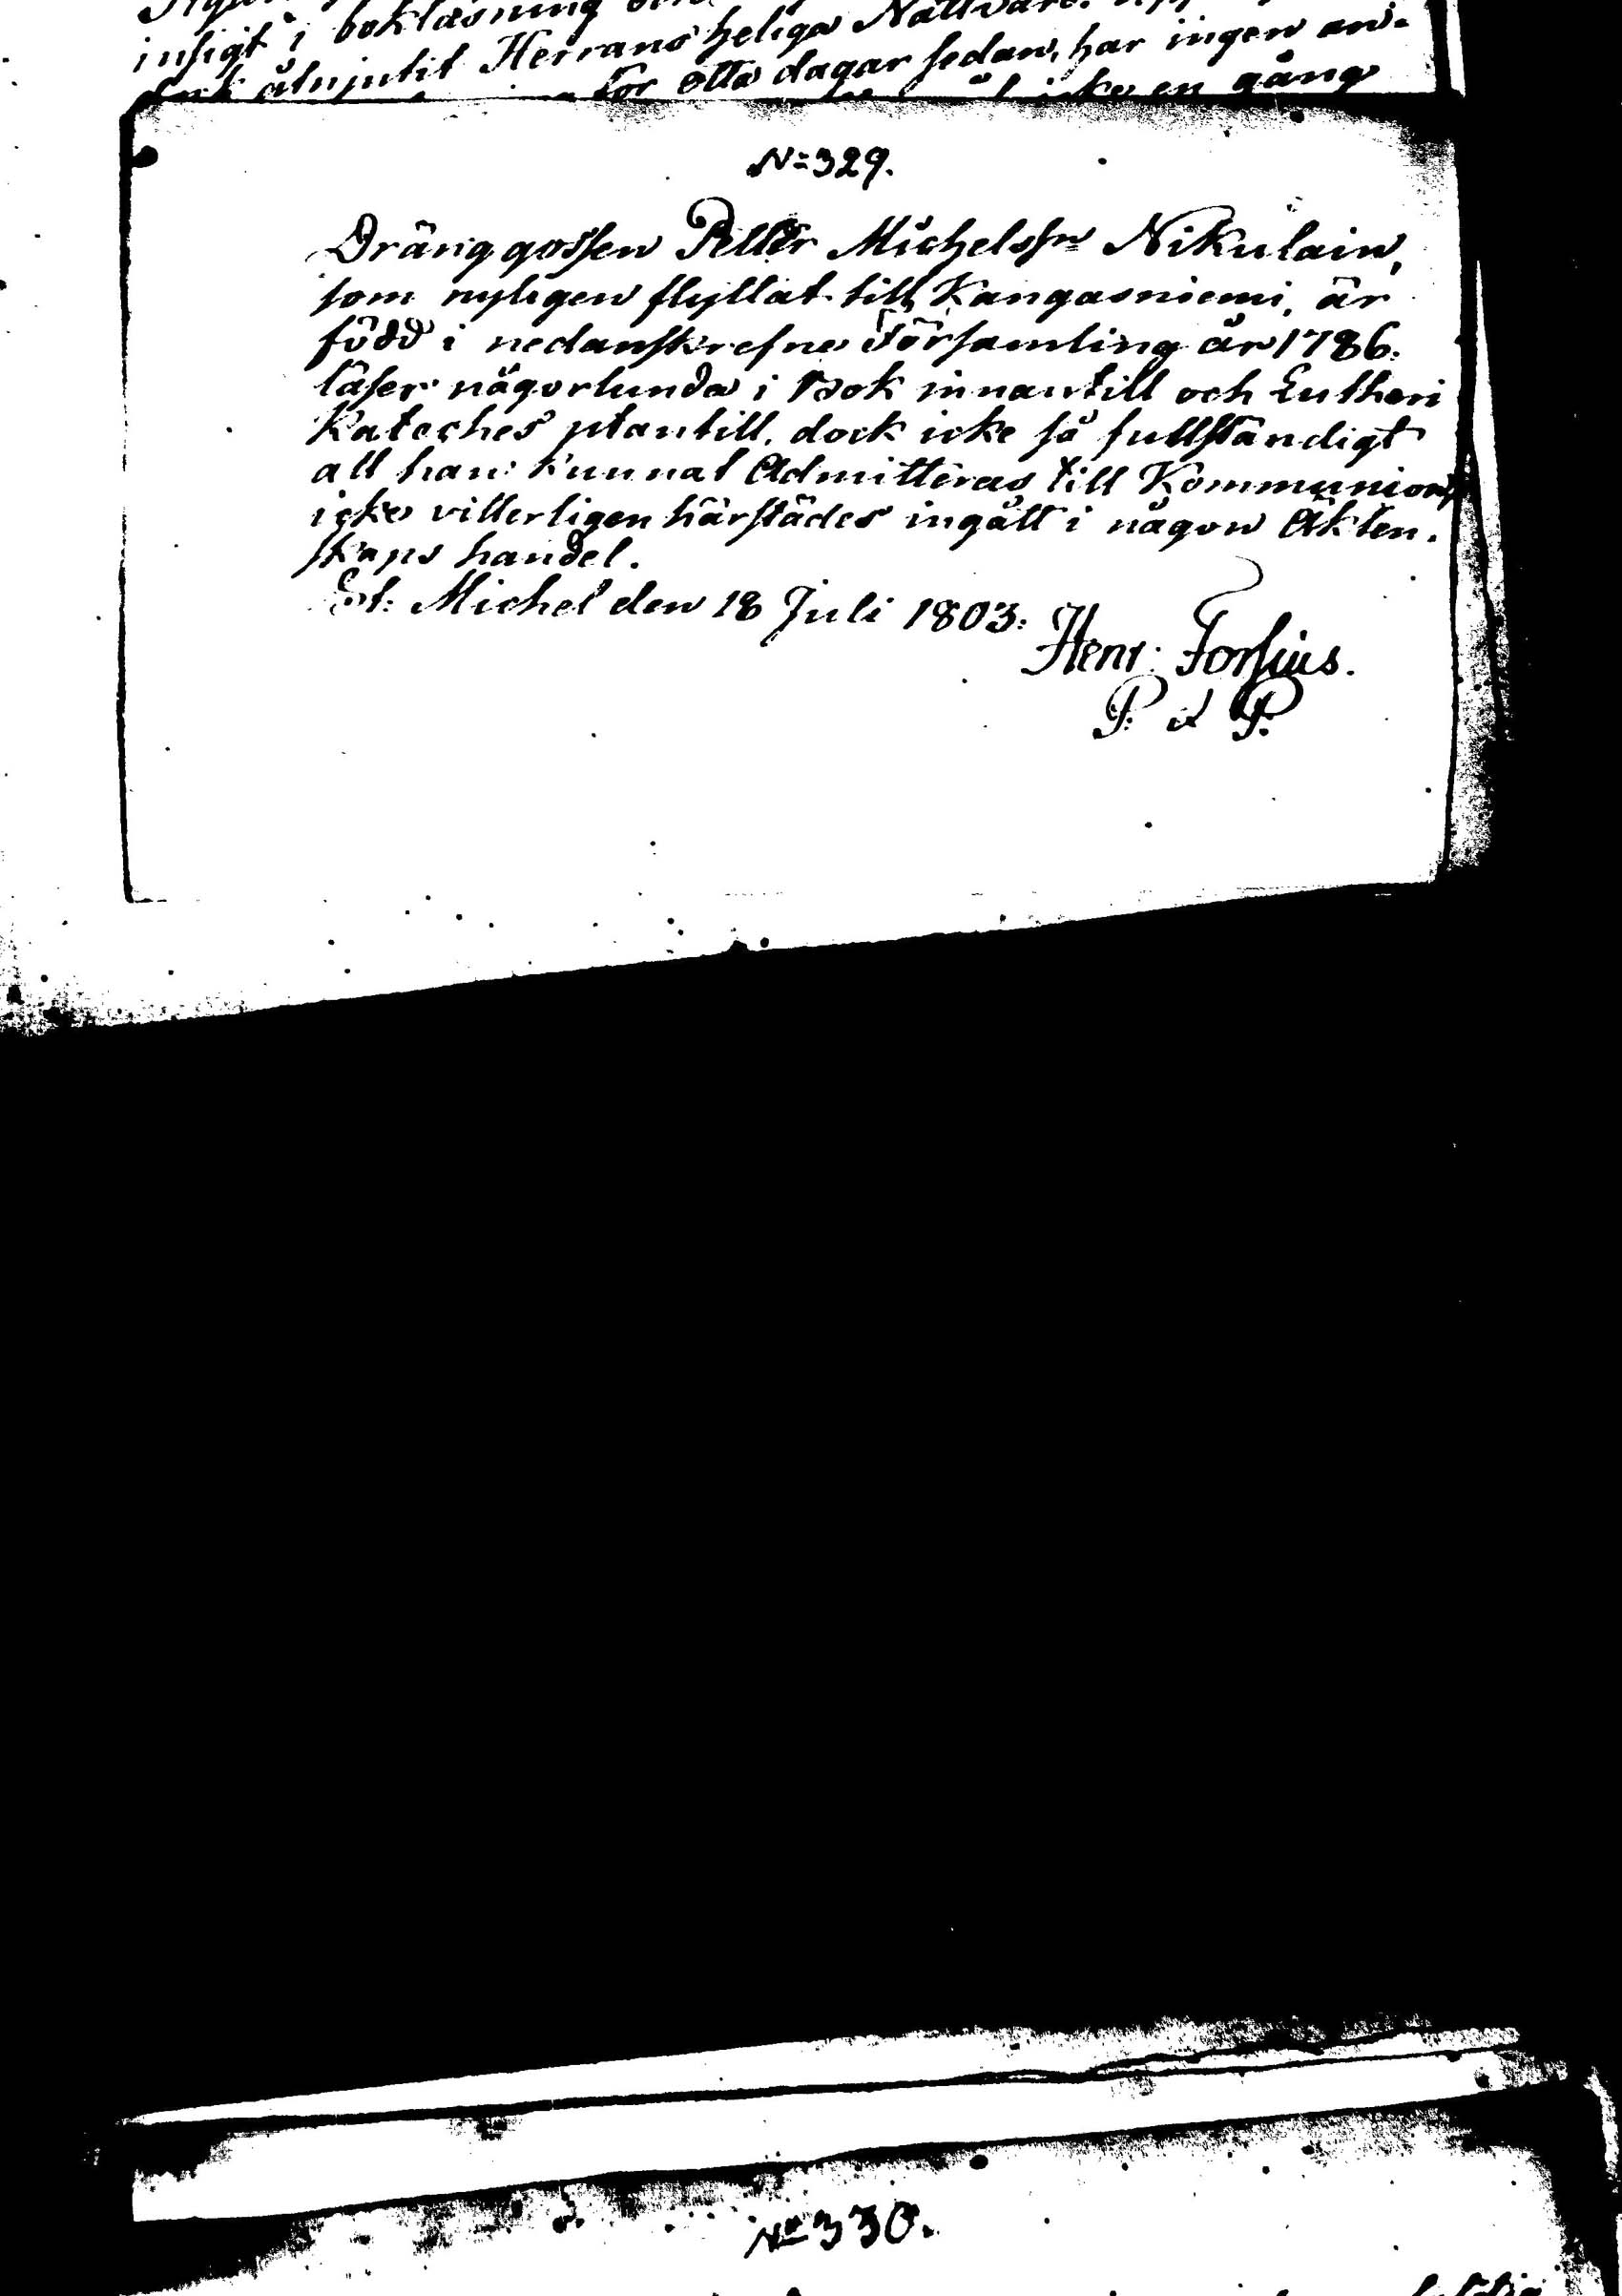 insigt i bokläsning
åtnjutit Herrans heliga Nattvard.
för otta dagar sedan, har ingen an-
icke en gång
No 329.
Dränggossen Petter Michelssn Nikulain,
som nyligen flyttat till Kangasniemi, är
född i nedanskrefne Församling år 1786.
läser någorlunda i Bok innantill och Lutheri
Kateches utantill, dock icke så fullständigt
att han kunnat Admitteras till Kommunion,
icke vitterligen härstädes ingått i någon Äkten-
skaps handel.
St. Michel den 18 Juli 1803.
Henr: Forsius.
P. & P.
No 330.